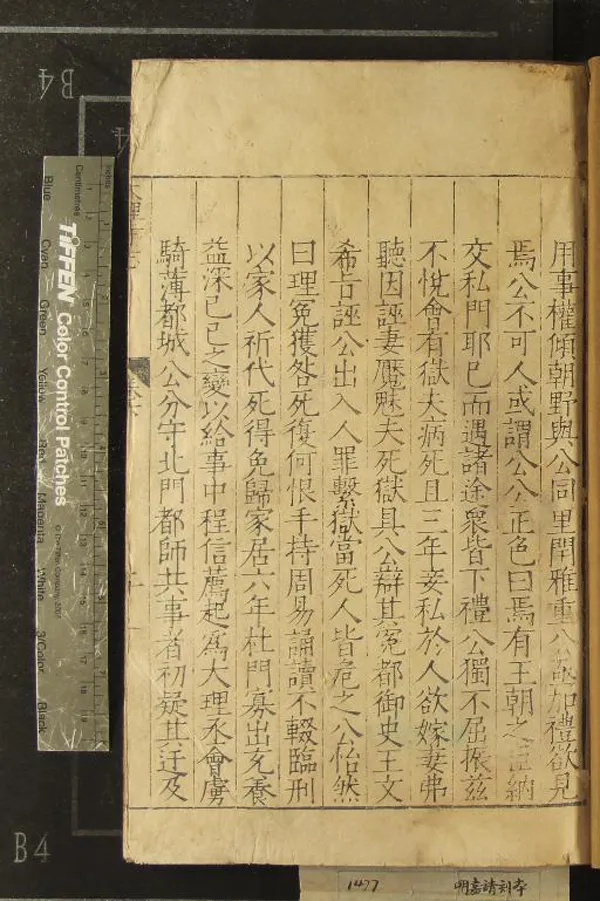 用事權傾朝野與公同里閈雅重公益加禮欲見
焉公不可人或謂公公正色曰焉有王朝之臣納
交私門耶已而遇諸途衆皆下禮公獨不屈振茲
不悅會有獄夫病死且三年妾私於人欲嫁妻弗
聽因誣妻魘魅夫死獄具公辯其冤都御史王文
希旨誣公出入人罪繫獄當死人皆危之公怡然
曰理冤獲咎死復何恨手持周易誦讀不輟臨刑
以家人祈代死得免歸家居六年杜門寡出充養
益深己巳之變以給事中程信薦起爲大理丞會虜
騎薄都城公分守北門都師共事者初疑其迂及
B4
B4
Centimetres
Inches
TIFFEN Color Control Patches
© The Tiffen Company, 2007
Blue
Cyan
Green
Yellow
Red
Magenta
White
3/Color
Black
1477
明嘉靖刻本